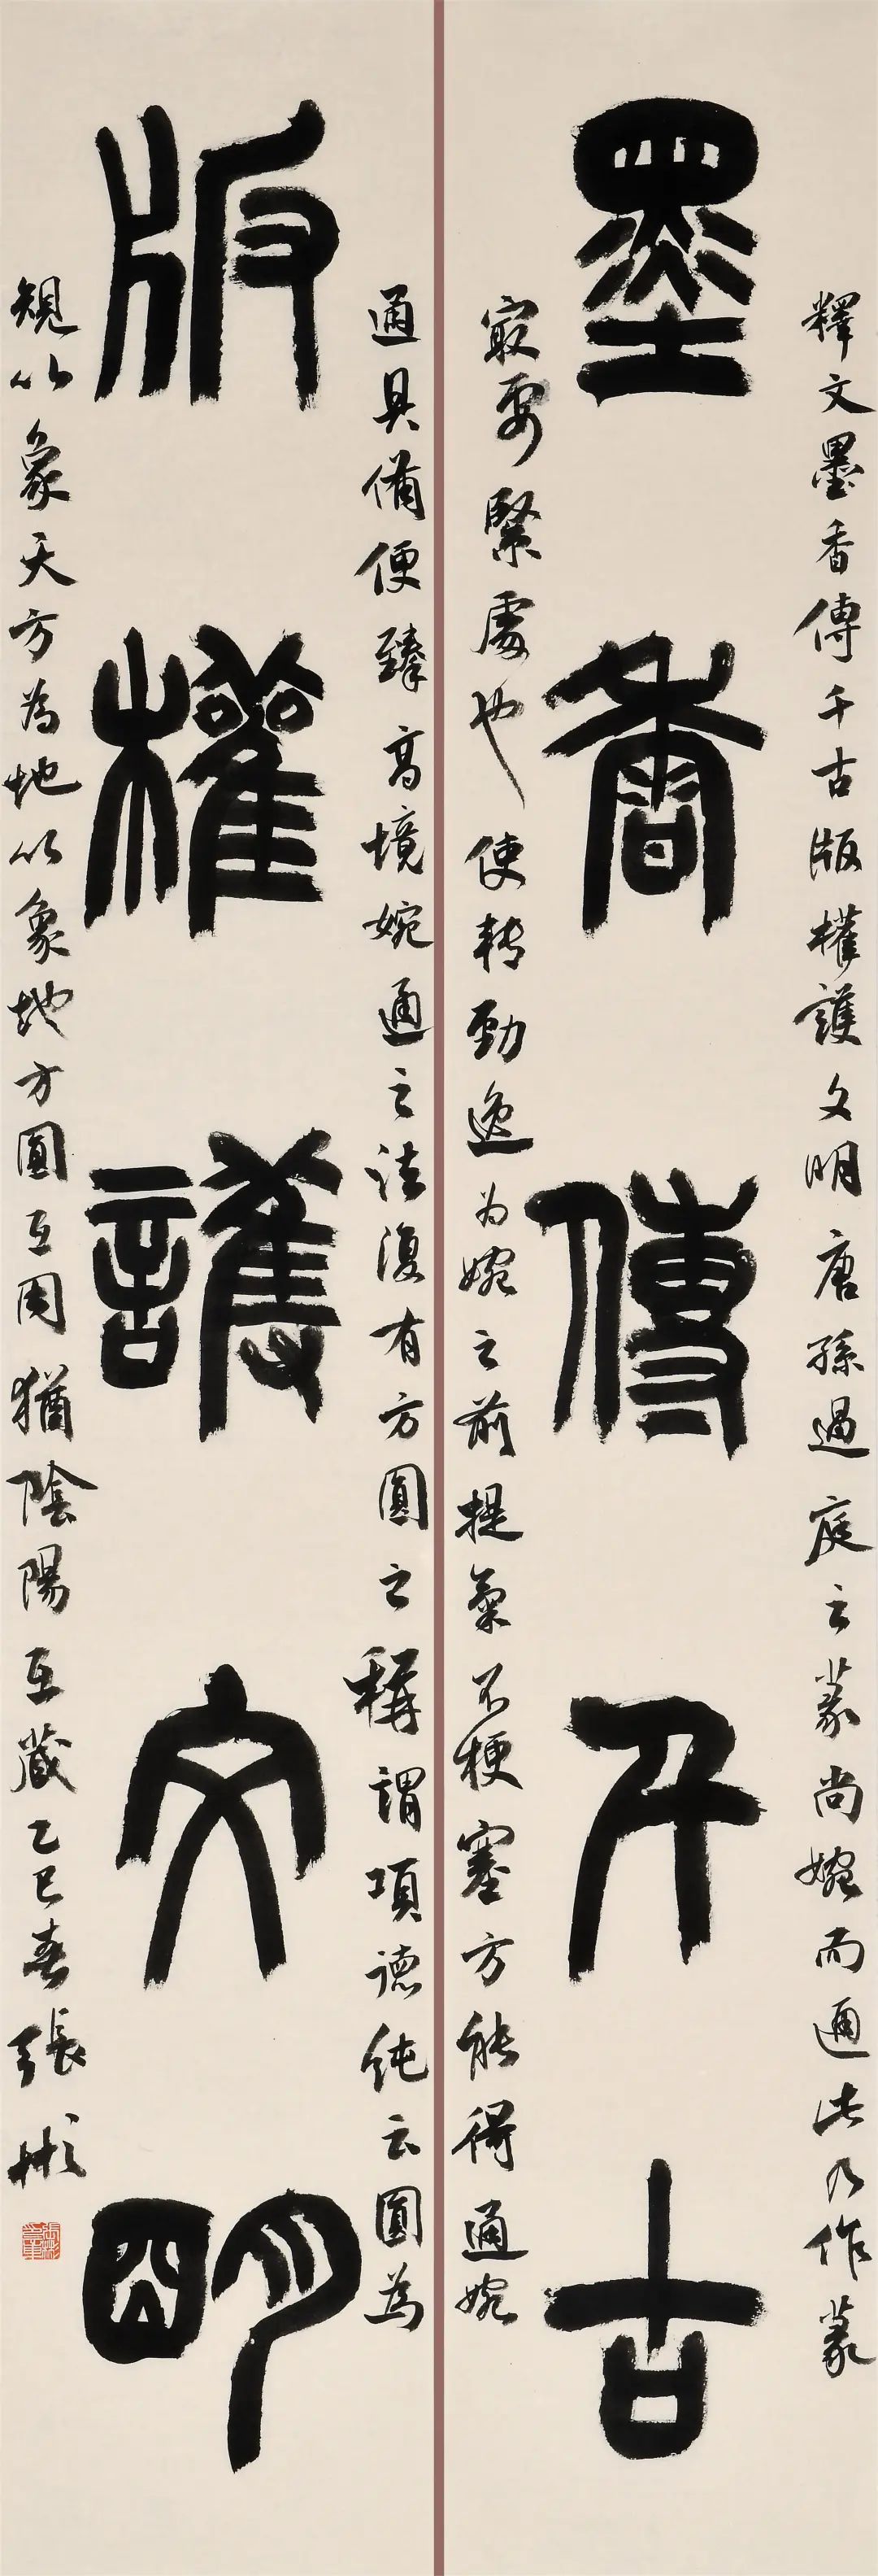 墨香傳千古
釋文墨香傳千古版權護文明唐孫過庭云篆尚婉而通此乃作篆
寂要緊處也使轉勁逸为婉之前提氣不梗塞方能得通婉
版權護文明
通具備便臻高境婉通之法復有方圓之稱謂項德純云圓為
規以象天方為地以象地方圓互用猶陰陽互藏乙巳春張彬